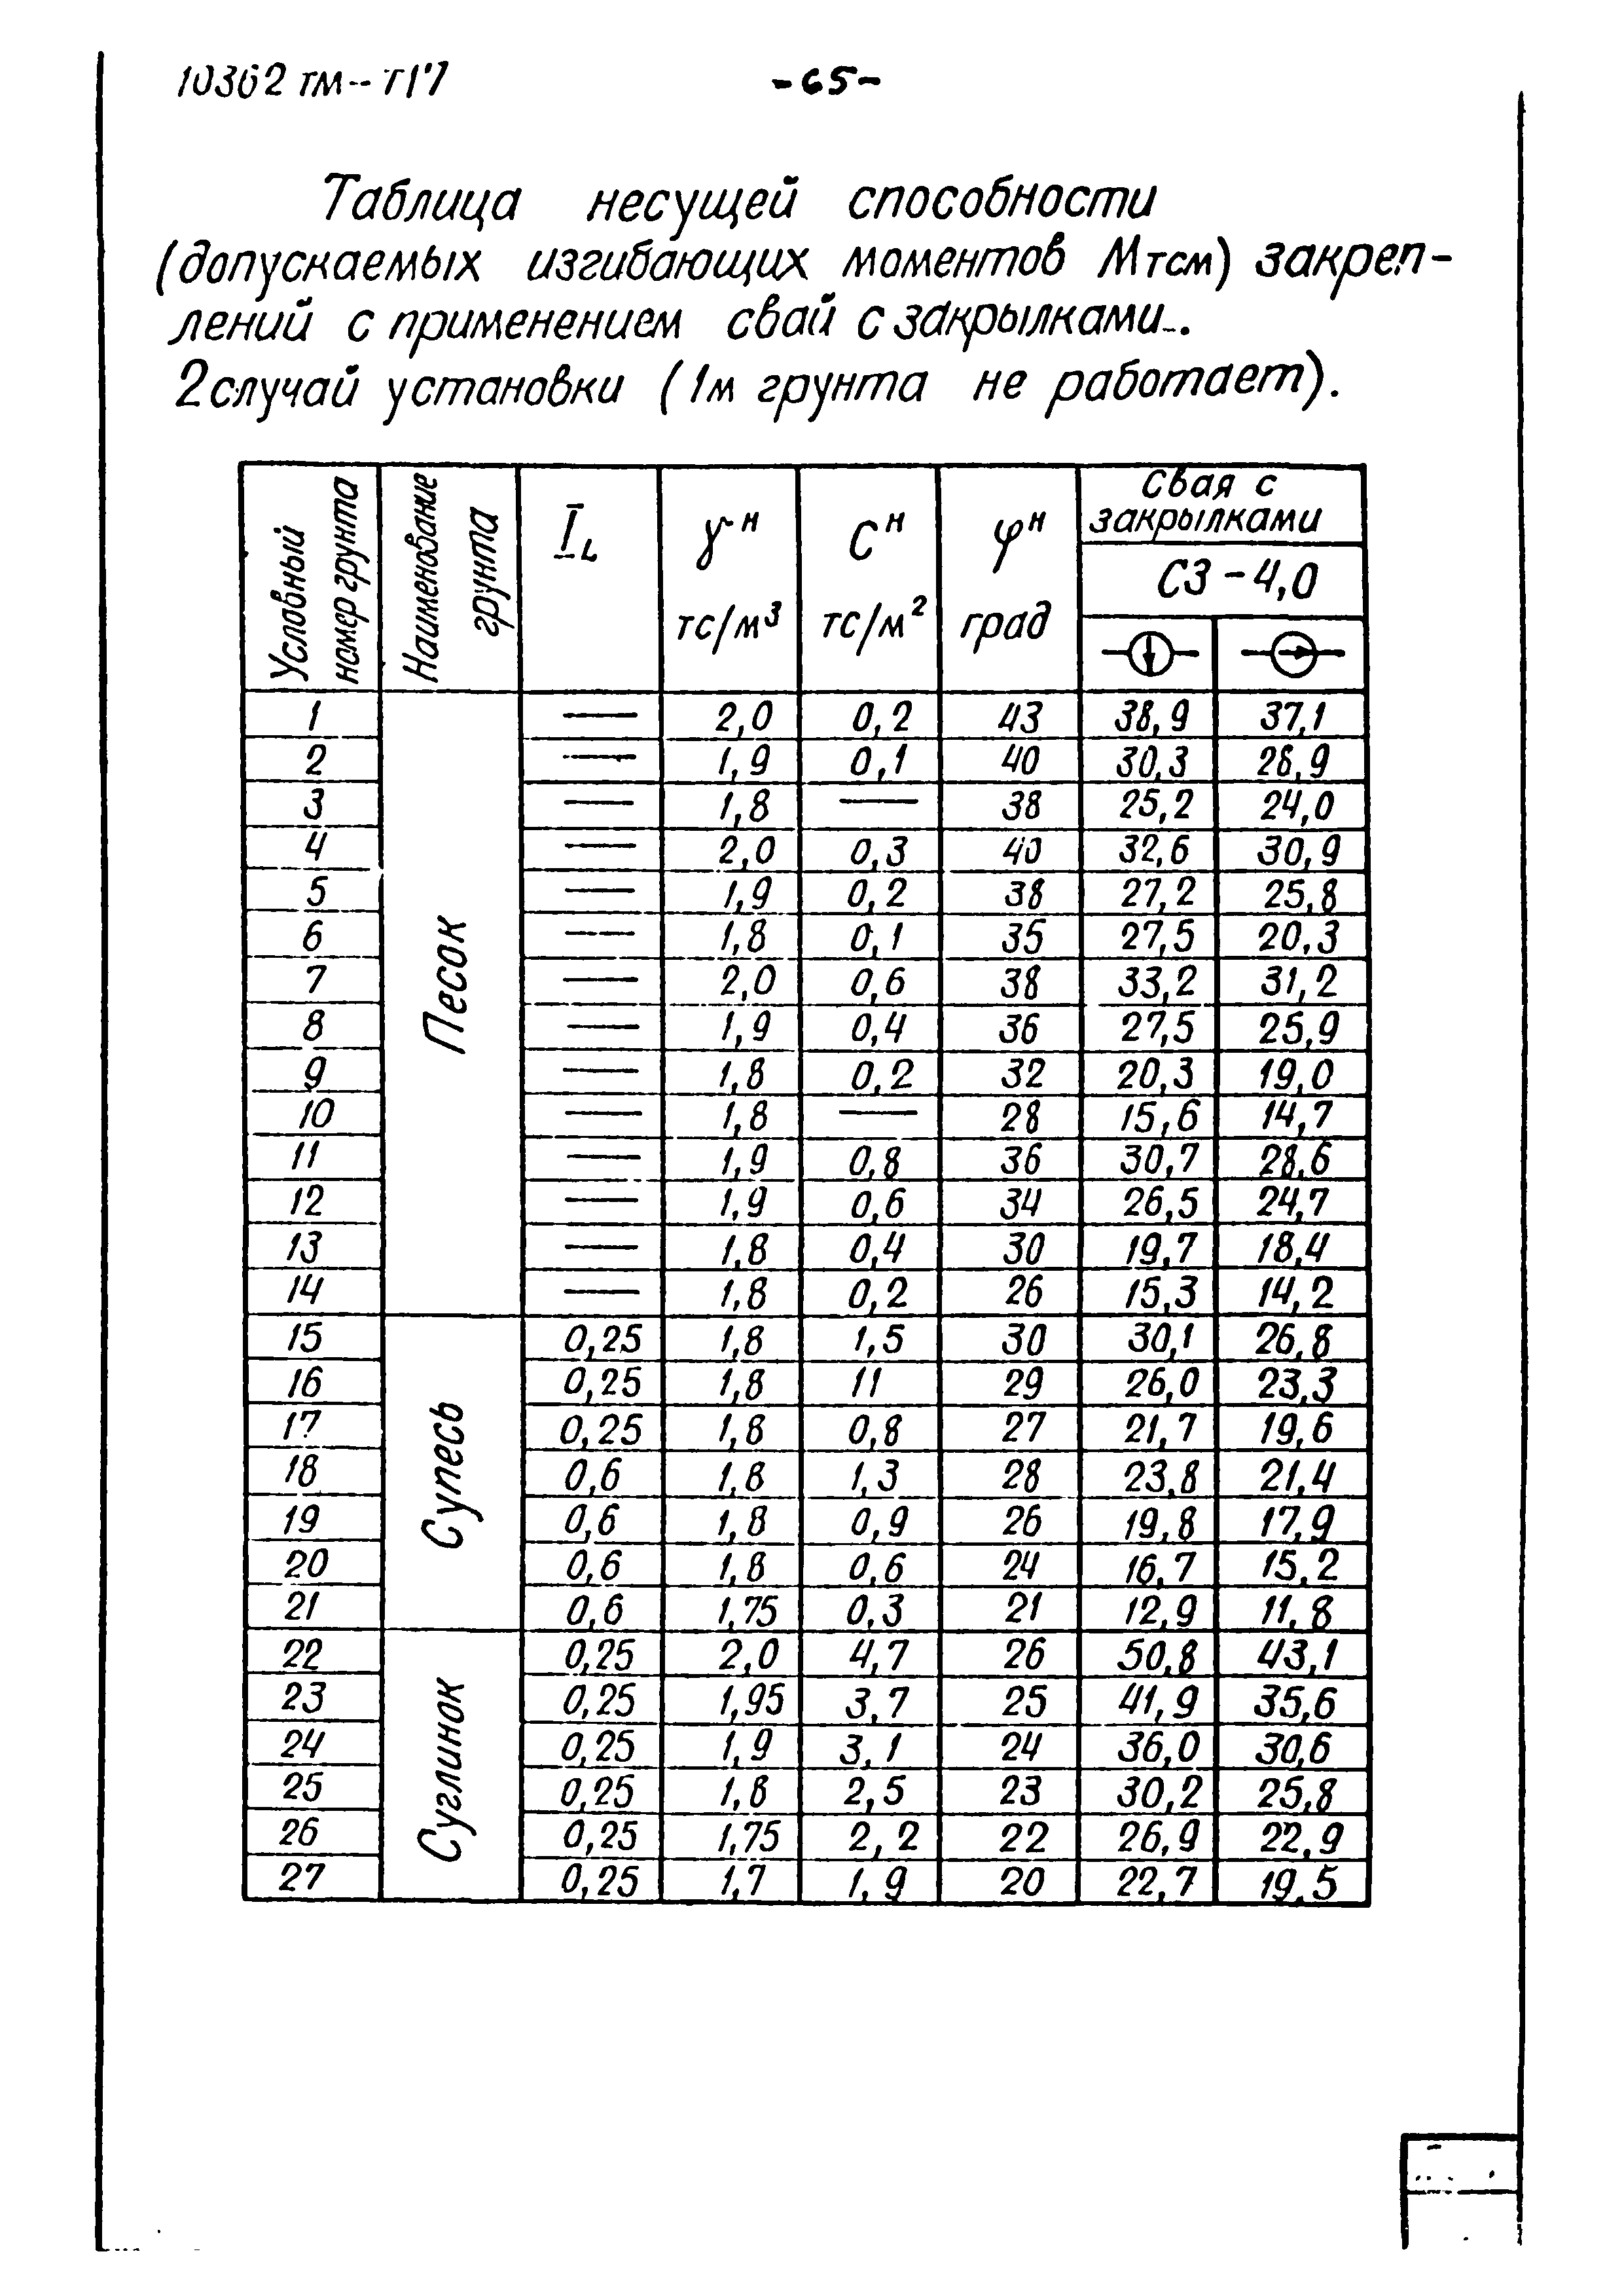 10362 тм-Т1'7
-65-
Таблица несущей способности
(допускаемых изгибающих моментов М тсм) закреп-
лений с применением свай с закрылками.
2 случай установки (1м грунта не работает).
Условный номер грунта | Наименование грунта | I_L | γᴴ тс/м³ | Cᴴ тс/м² | φᴴ град | Свая с закрылками
СЗ-4,0
1 | Песок | — | 2,0 | 0,2 | 43 | 38,9 | 37,1
2 | — | 1,9 | 0,1 | 40 | 30,3 | 28,9
3 | — | 1,8 | — | 38 | 25,2 | 24,0
4 | — | 2,0 | 0,3 | 40 | 32,6 | 30,9
5 | — | 1,9 | 0,2 | 38 | 27,2 | 25,8
6 | — | 1,8 | 0,1 | 35 | 27,5 | 20,3
7 | — | 2,0 | 0,6 | 38 | 33,2 | 31,2
8 | — | 1,9 | 0,4 | 36 | 27,5 | 25,9
9 | — | 1,8 | 0,2 | 32 | 20,3 | 19,0
10 | — | 1,8 | — | 28 | 15,6 | 14,7
11 | — | 1,9 | 0,8 | 36 | 30,7 | 28,6
12 | — | 1,9 | 0,6 | 34 | 26,5 | 24,7
13 | — | 1,8 | 0,4 | 30 | 19,7 | 18,4
14 | — | 1,8 | 0,2 | 26 | 15,3 | 14,2
15 | Супесь | 0,25 | 1,8 | 1,5 | 30 | 30,1 | 26,8
16 | 0,25 | 1,8 | 11 | 29 | 26,0 | 23,3
17 | 0,25 | 1,8 | 0,8 | 27 | 21,7 | 19,6
18 | 0,6 | 1,8 | 1,3 | 28 | 23,8 | 21,4
19 | 0,6 | 1,8 | 0,9 | 26 | 19,8 | 17,9
20 | 0,6 | 1,8 | 0,6 | 24 | 16,7 | 15,2
21 | 0,6 | 1,75 | 0,3 | 21 | 12,9 | 11,8
22 | Суглинок | 0,25 | 2,0 | 4,7 | 26 | 50,8 | 43,1
23 | 0,25 | 1,95 | 3,7 | 25 | 41,9 | 35,6
24 | 0,25 | 1,9 | 3,1 | 24 | 36,0 | 30,6
25 | 0,25 | 1,8 | 2,5 | 23 | 30,2 | 25,8
26 | 0,25 | 1,75 | 2,2 | 22 | 26,9 | 22,9
27 | 0,25 | 1,7 | 1,9 | 20 | 22,7 | 19,5